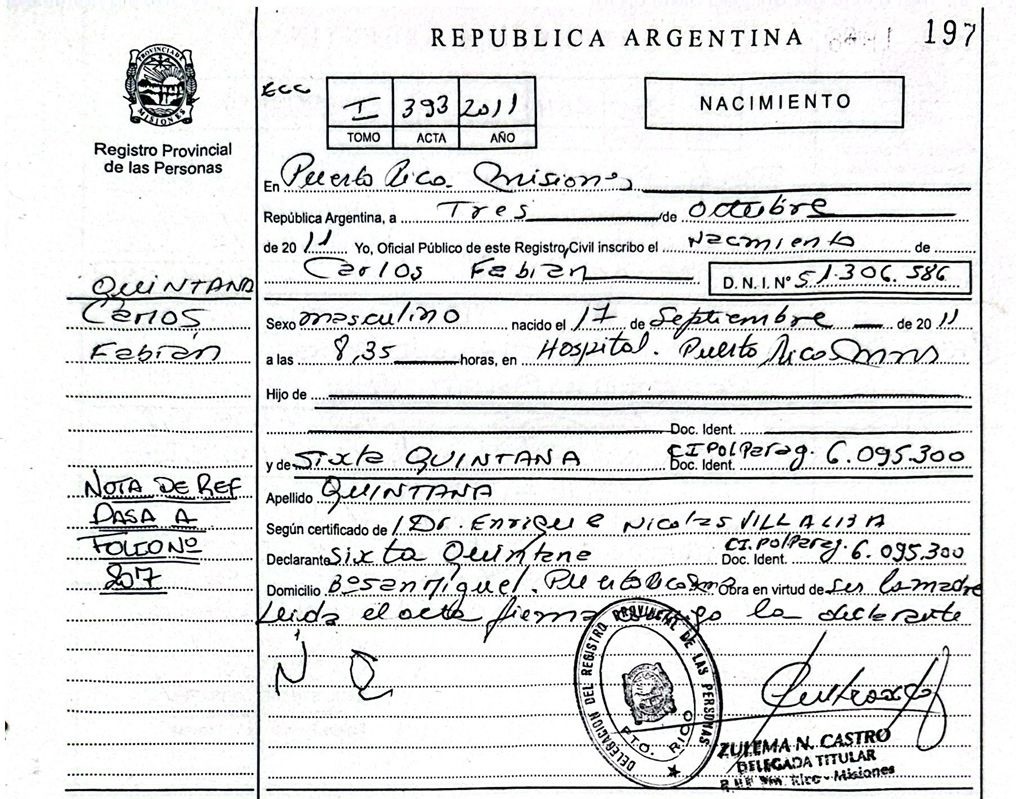 REPUBLICA ARGENTINA
197
PROVINCIA DE MISIONES
Registro Provincial
de las Personas
ECC
I 393 2011
TOMO ACTA AÑO
NACIMIENTO
En Puerto Rico. Misiones
República Argentina, a Tres de octubre
de 2011 Yo, Oficial Público de este Registro Civil inscribo el Nacimiento de
Carlos Fabián D.N.I. Nº 51.306.586
QUINTANA
Carlos
Fabián
Sexo masculino nacido el 17 de Septiembre de 2011
a las 8,35 horas, en Hospital. Puerto Rico Mnes
Hijo de
Doc. Ident.
y de Sixta QUINTANA CI Pol Parag. Doc. Ident. 6.095.300
NOTA DE REF
PASA A
FOLIO Nº
207
Apellido QUINTANA
Según certificado de Dr. Enrique Nicolás VILLALBA
Declarante Sixta Quintana CI. Pol Parag. Doc. Ident. 6.095.300
Domicilio Bº San Miguel. Puerto Rico Mnes Obra en virtud de ser la madre
Leida el acta firma la declarante
DELEGACION DEL REGISTRO PROVINCIAL DE LAS PERSONAS
PTO. RICO
ZULEMA N. CASTRO
DELEGADA TITULAR
Rico - Misiones